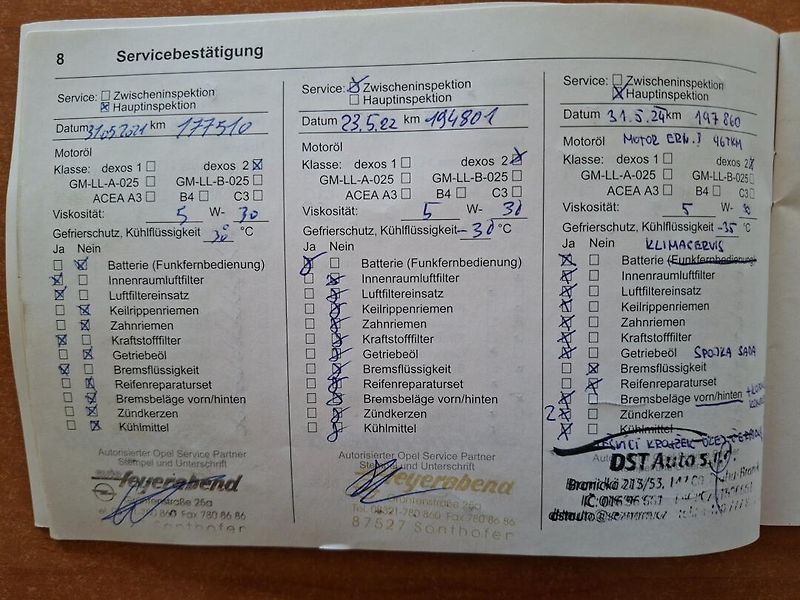 8 Servicebestätigung
Service: Zwischeninspektion
Hauptinspektion
Datum 31.05.2021 km 177510
Motoröl
Klasse: dexos 1 dexos 2
GM-LL-A-025 GM-LL-B-025
ACEA A3 B4 C3
Viskosität: 5 W- 30
Gefrierschutz, Kühlflüssigkeit 30 °C
Ja Nein
Batterie (Funkfernbedienung)
Innenraumluftfilter
Luftfiltereinsatz
Keilrippenriemen
Zahnriemen
Kraftstofffilter
Getriebeöl
Bremsflüssigkeit
Reifenreparaturset
Bremsbeläge vorn/hinten
Zündkerzen
Kühlmittel
Autorisierter Opel Service Partner
Stempel und Unterschrift
auto feyerabend
Sonthofen
Service: Zwischeninspektion
Hauptinspektion
Datum 23.5.22 km 194801
Motoröl
Klasse: dexos 1 dexos 2
GM-LL-A-025 GM-LL-B-025
ACEA A3 B4 C3
Viskosität: 5 W- 30
Gefrierschutz, Kühlflüssigkeit -30 °C
Ja Nein
Batterie (Funkfernbedienung)
Innenraumluftfilter
Luftfiltereinsatz
Keilrippenriemen
Zahnriemen
Kraftstofffilter
Getriebeöl
Bremsflüssigkeit
Reifenreparaturset
Bremsbeläge vorn/hinten
Zündkerzen
Kühlmittel
Autorisierter Opel Service Partner
Stempel und Unterschrift
feyerabend
Tel. 08321-780 860 Fax 780 86 86
87527 Sonthofen
Service: Zwischeninspektion
Hauptinspektion
Datum 31.5.24 km 197860
Motoröl MOTOR
Klasse: dexos 1 dexos 2
GM-LL-A-025 GM-LL-B-025
ACEA A3 B4 C3
Viskosität: 5 W- 30
Gefrierschutz, Kühlflüssigkeit -35 °C
Ja Nein KLIMASERVIS
Batterie (Funkfernbedienung)
Innenraumluftfilter
Luftfiltereinsatz
Keilrippenriemen
Zahnriemen
Kraftstofffilter
Getriebeöl SPOJKA SADA
Bremsflüssigkeit
Reifenreparaturset
Bremsbeläge vorn/hinten
2x Zündkerzen
Kühlmittel
DST Auto
Branická 213/53,